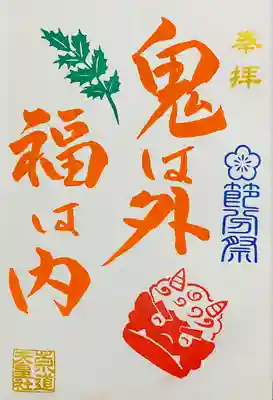 奉拝
節分祭
鬼は外
福は内